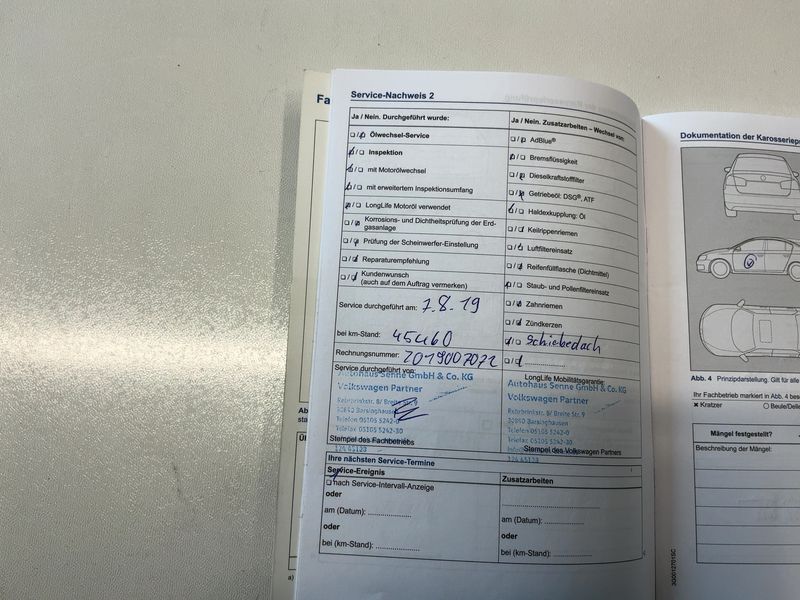 Fa
Service-Nachweis 2
Ja / Nein. Durchgeführt wurde:
Ölwechsel-Service
Inspektion
mit Motorölwechsel
mit erweitertem Inspektionsumfang
LongLife Motoröl verwendet
Korrosions- und Dichtheitsprüfung der Erd-
gasanlage
Prüfung der Scheinwerfer-Einstellung
Reparaturempfehlung
Kundenwunsch
(auch auf dem Auftrag vermerken)
Service durchgeführt am: 7.8.19
bei km-Stand: 45460
Rechnungsnummer: 2019007072
Service durchgeführt von:
Autohaus Senne GmbH & Co. KG
Volkswagen Partner
30890 Barsinghausen
Telefon 05105 5242-0
Telefax 05105 5242-30
Stempel des Fachbetriebs
Ja / Nein. Zusatzarbeiten – Wechsel von:
AdBlue®
Bremsflüssigkeit
Dieselkraftstofffilter
Getriebeöl: DSG®, ATF
Haldexkupplung: Öl
Keilrippenriemen
Luftfiltereinsatz
Reifenfüllflasche (Dichtmittel)
Staub- und Pollenfiltereinsatz
Zahnriemen
Zündkerzen
Schiebedach
LongLife Mobilitätsgarantie:
Autohaus Senne GmbH & Co. KG
Volkswagen Partner
30890 Barsinghausen
Telefon 05105 5242-0
Telefax 05105 5242-30
Stempel des Volkswagen Partners
Ihre nächsten Service-Termine
Service-Ereignis
nach Service-Intervall-Anzeige
oder
am (Datum):
oder
bei (km-Stand):
Zusatzarbeiten
am (Datum):
oder
bei (km-Stand):
Dokumentation der Karosseriep
Abb. 4 Prinzipdarstellung. Gilt für alle
Ihr Fachbetrieb markiert in Abb. 4 bes
Kratzer
Beule/Delle
Mängel festgestellt?
Beschreibung der Mängel:
3G0012701SC
Ab
sta
a)